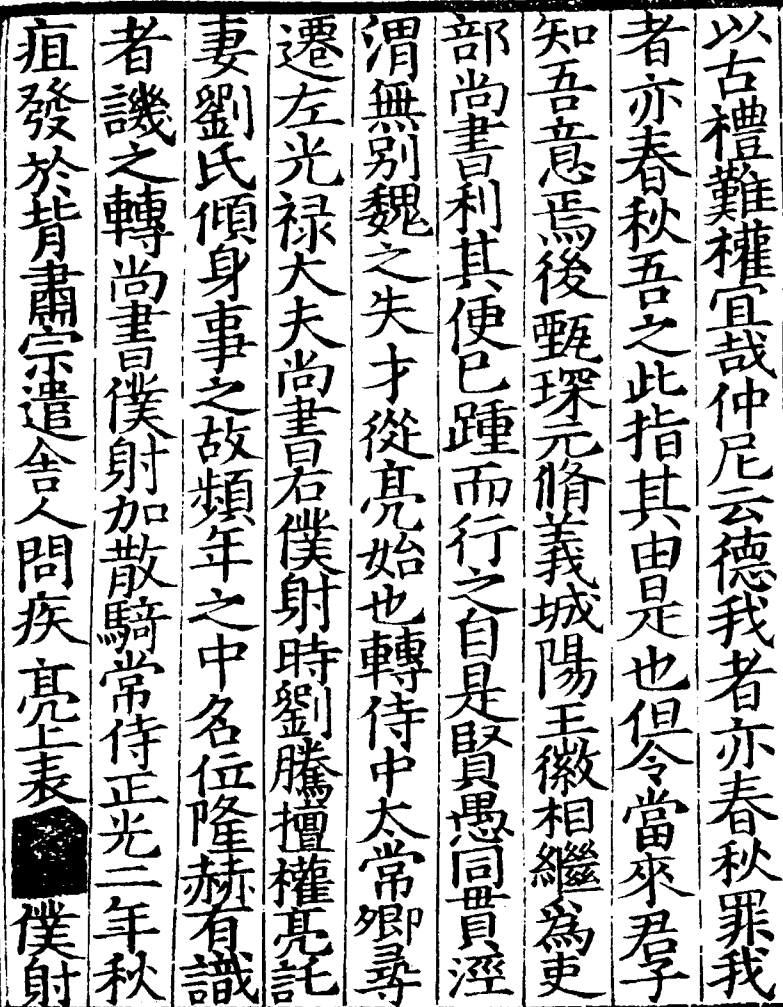 以古禮難權宜哉仲尼云德我者亦春秋罪我
者亦春秋吾之此指其由是也但令當來君子
知吾意焉後甄琛元脩義城陽王徽相繼爲吏
部尚書利其便已踵而行之自是賢愚同貫涇
渭無别魏之失才從亮始也轉侍中太常卿尋
遷左光禄大夫尚書右僕射時劉騰擅權亮託
妻劉氏傾身事之故頻年之中名位隆赫有識
者譏之轉尚書僕射加散騎常侍正光二年秋
疽發於背肅宗遣舎人問疾亮上表僕射